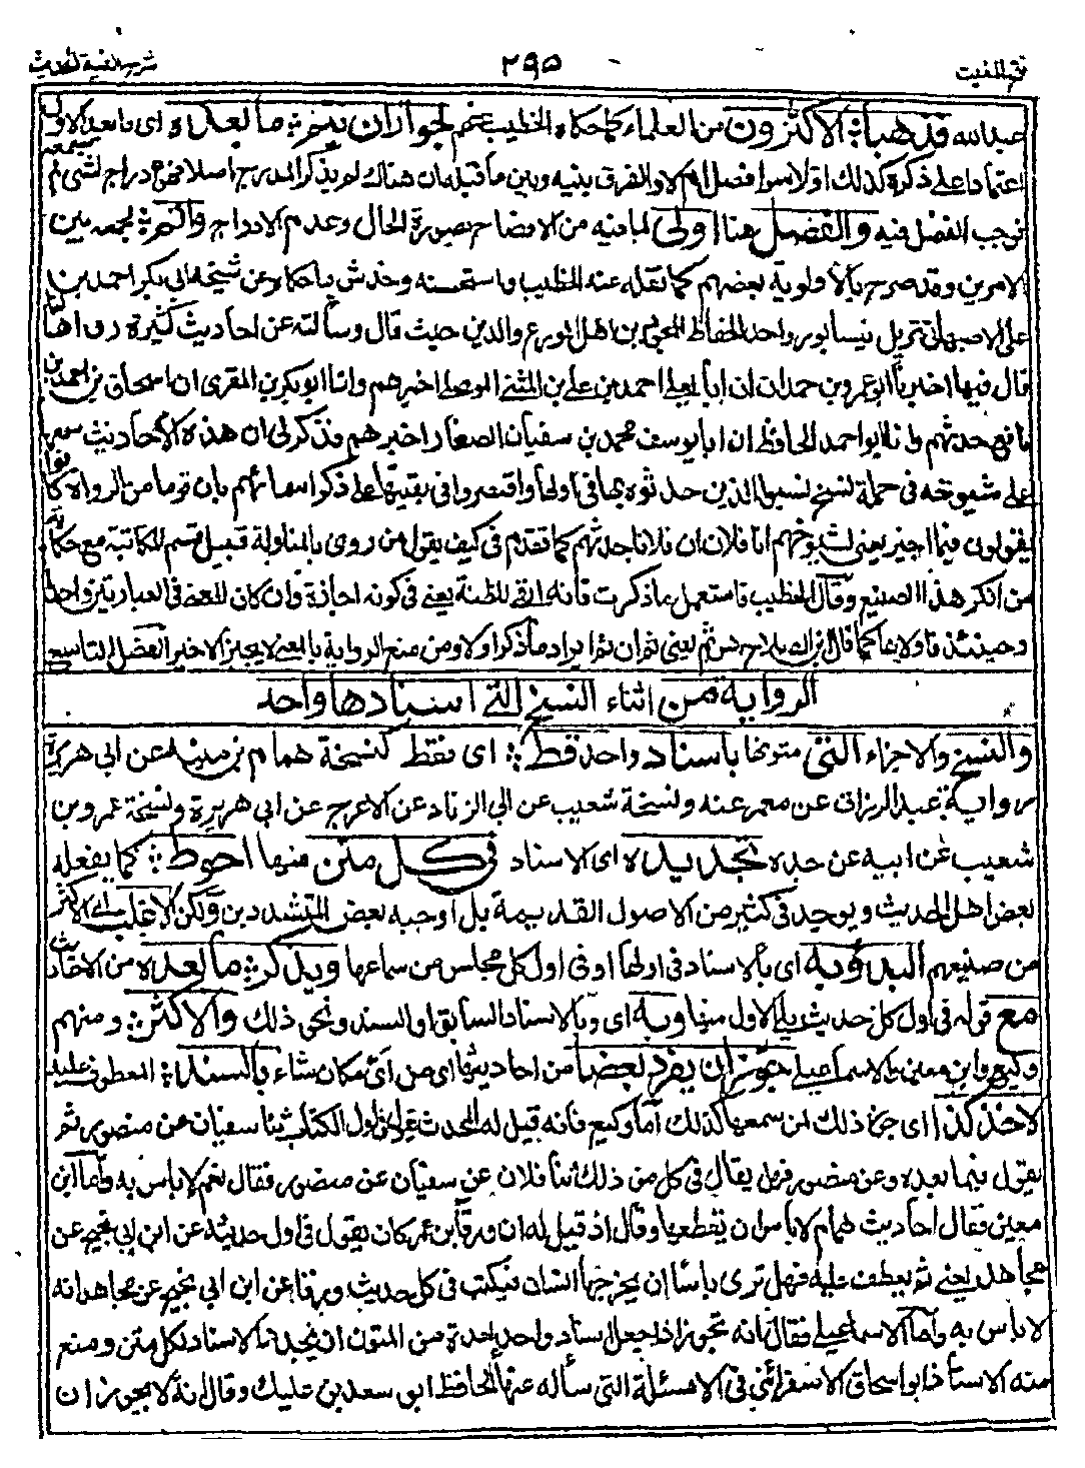 فتح المغيث ٢٩٥ شرح الفية الحديث
عبدالله فذهبا الاكثرون من العلماء كما حكاه الخطيب عنهم لجواز ان يتم ما بعده اى ما بعد الاول
اعتمادا على ذكره كذلك اولا سوا فصل ام لا والفرق بينه وبين ما قبله ان هناك لم يذكر المدرج اصلا فهو ادراج لشئ لم يسمعه
فوجب الفصل فيه والفصل هنا اولى لما فيه من الافصاح بصورة الحال وعدم الادراج واتم لجمعه بين
الامرين وقد صرح بالأولوية بعضهم كما نقله عنه الخطيب واستحسنه وحدث بما حكاه عن شيخه ابى بكر احمد بن
على الاصبهانى نزيل نيسابور واحد الحفاظ المجتهدين اهل الورع والدين حيث قال وسألته عن احاديث كثيرة رواها لنا
قال فيها اخبرنا ابو عمرو بن حمدان ان ابا يعلى احمد بن على بن المثنى الموصلى اخبرهم وانا ابو بكر بن المقرى ان اسحاق بن احمد بن
نافع حدثهم وانا ابو احمد الحافظ ان ابا يوسف محمد بن سفيان الصفار اخبرهم فذكر لى ان هذه الأحاديث سمعها
على شيوخه فى جملة نسخ نسبوا الذين حدثوه بها فى اولها واقتصروا فى بقيتها على ذكر اسمائهم بان قوما من الرواة كانوا
يقولون فيما اجيز يعنى لشيوخهم انا فلان ان فلانا حدثهم كما تقدم فى كيف يقول من روى بالمناولة قبيل قسم المكاتبة مع حكاية
من انكر هذا الصنيع وقال الخطيب فاستعمل ما ذكرت فانه انفى للظنة يعنى فى كونه اجازة وان كان المعنى فى العبارتين واحدا
وحينئذ فاولاهما كما قال ابن الصلاح ثم يعنى ثم ان ثم ايراد ما ذكر اولا ومن منع الرواية بالمعنى لا يجيز الاخير الفصل التاسع
الرواية من اثناء النسخ التى اسنادها واحد
والنسخ والاجزاء التى متونها باسناد واحد قط اى فقط كنسخة همام بن منبه عن ابى هريرة
رواية عبد الرزاق عن معمر عنه ونسخة شعيب عن ابى الزناد عن الاعرج عن ابى هريرة ونسخة عمرو بن
شعيب عن ابيه عن جده تجديده اى الاسناد فى كل متن منها احوط كما يفعله
بعض اهل الحديث ويوجد فى كثير من الاصول القديمة بل اوجبه بعض المتشددين ولكن الاغلب اى الاكثر
من صنيعهم البدؤبه اى بالاسناد فى اولها او فى اول كل مجلس من سماعها ويذكر ما بعده من الاحاديث
مع قوله فى اول كل حديث يلى الاول منها وبه اى وبالاسناد السابق او السند ونحو ذلك والاكثر ومنهم
وكيع وابن معين والاسماعيلى جوز ان يفرد بعضا من احاديثها اى من اى مكان شاء بالسند المعطوف عليه
لاخذ كذا اى جاز ذلك لمن سمعها كذلك اما وكيع فانه قيل له المحدث يقول فى اول الكتاب ثنا سفيان عن منصور ثم
يقول فيما بعده وعن منصور فهل يقال فى كل من ذلك ثنا فلان عن سفيان عن منصور فقال نعم لا باس به واما ابن
معين فقال احاديث همام لا باس ان تقطعها وقال اذ قيل له ان ورقا بن عمر كان يقول فى اول حديثه عن ابن ابى نجيح عن
مجاهد يعنى ثم يعطف عليه فهل ترى باسا ان يخرجها انسان فيكتب فى كل حديث ورقا عن ابن ابى نجيح عن مجاهد انه
لا باس به واما الاسماعيلى فقال انه تجوز اذا جعل اسناد واحد لعدة من المتون ان يجدد الاسناد لكل متن ومنع
منه الاستاذ ابو اسحاق الاسفرائنى فى الاسئلة التى سأله عنها الحافظ ابو سعد بن عليك وقال انه لا يجوز ان